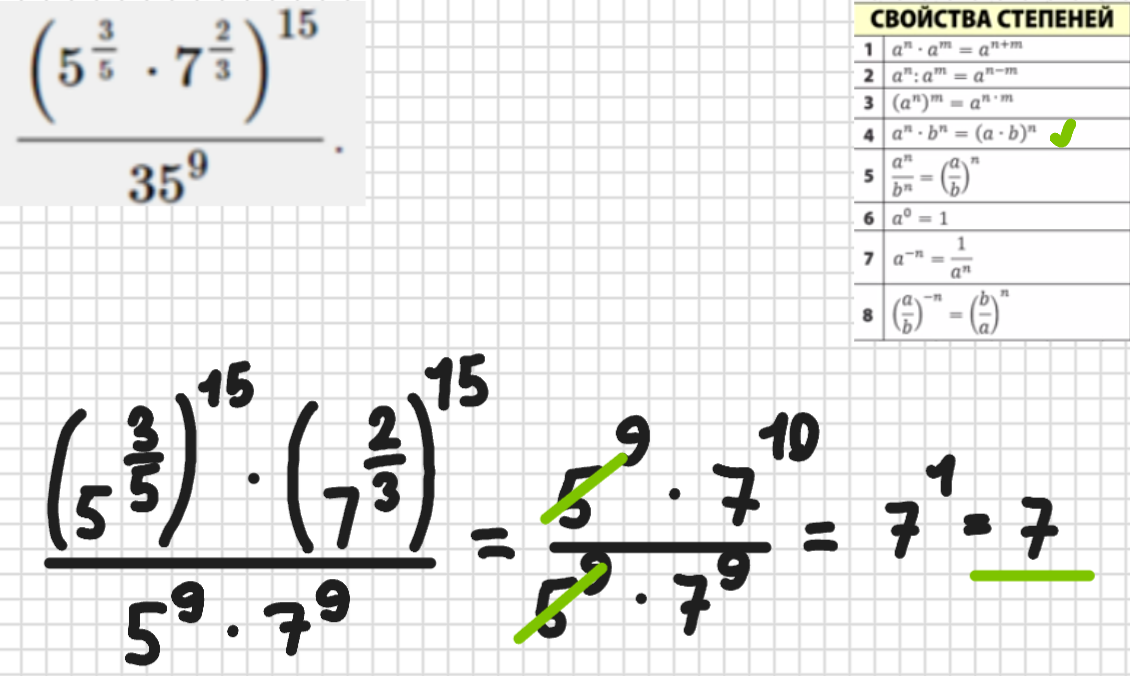 (5^(3/5) · 7^(2/3))^15 / 35^9 .
СВОЙСТВА СТЕПЕНЕЙ
1 aⁿ · aᵐ = aⁿ⁺ᵐ
2 aⁿ : aᵐ = aⁿ⁻ᵐ
3 (aⁿ)ᵐ = aⁿ·ᵐ
4 aⁿ · bⁿ = (a · b)ⁿ ✓
5 aⁿ/bⁿ = (a/b)ⁿ
6 a⁰ = 1
7 a⁻ⁿ = 1/aⁿ
8 (a/b)⁻ⁿ = (b/a)ⁿ
(5^(3/5))^15 · (7^(2/3))^15 / 5^9 · 7^9 = 5^9 · 7^10 / 5^9 · 7^9 = 7^1 = 7